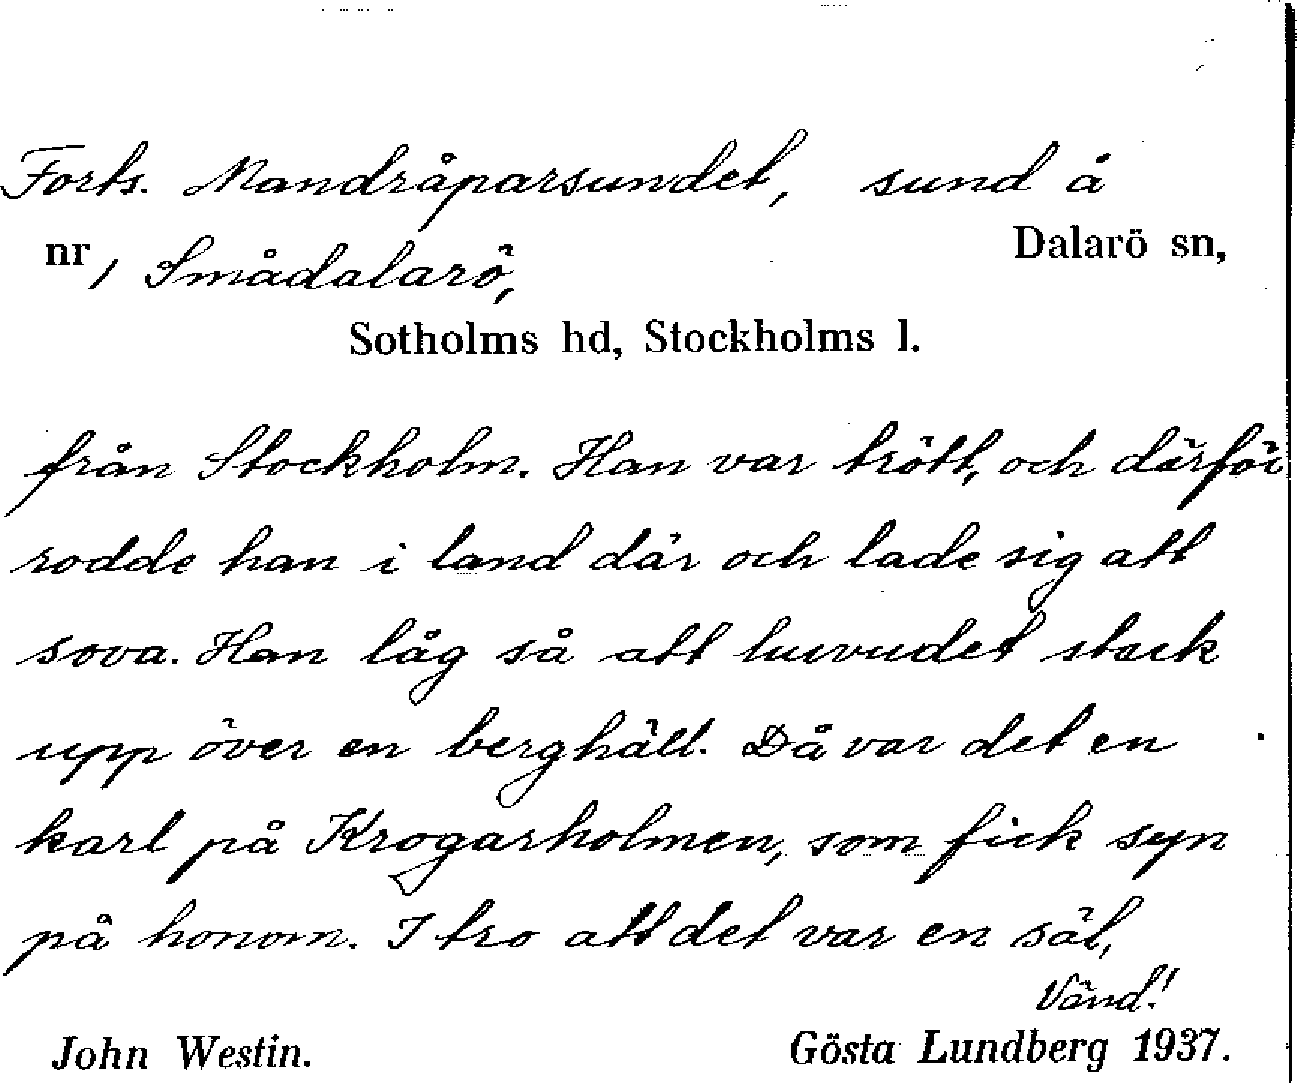 Forts. Mandråparsundet, sund å
nr , Smådalarö, Dalarö sn,
Sotholms hd, Stockholms l.
från Stockholm. Han var trött, och därför
rodde han i land där och lade sig att
sova. Han låg så att huvudet stack
upp över en berghäll. Då var det en
karl på Krogarholmen, som fick syn
på honom. I tro att det var en säl,
Vänd!
John Westin. Gösta Lundberg 1937.